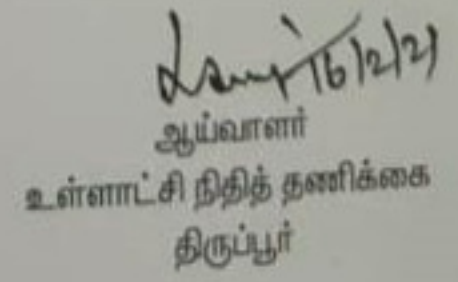 16/2/21
ஆய்வாளர்
உள்ளாட்சி நிதித் தணிக்கை
திருப்பூர்